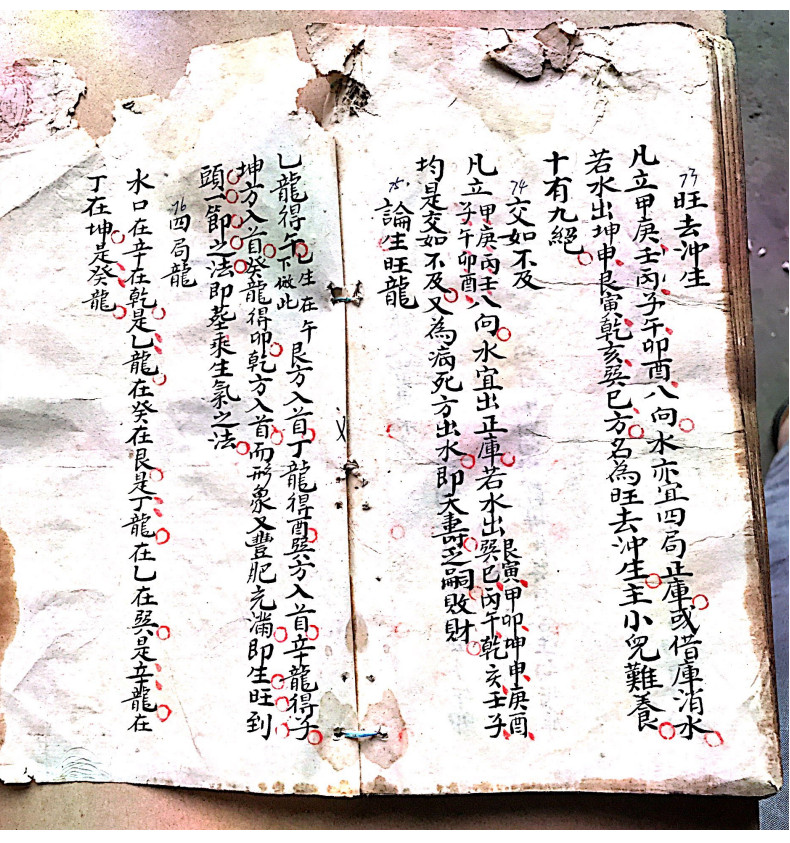 73 旺去沖生
凡立甲庚壬丙子午卯酉八向水亦宜四局正庫或借庫消水
若水出坤申艮寅乾亥巽巳方名為旺去沖生主小兒難養
十有九絕
74 交如不及
凡立甲庚丙壬子午卯酉八向水宜出正庫若水出巽巳丙午乾亥壬子艮寅甲卯坤申庚酉
均是交如不及又為病死方出水即夭壽乏嗣敗財
75 論生旺龍
乙龍得午乙生在午下倣此艮方入首丁龍得酉巽方入首辛龍得子
坤方入首癸龍得卯乾方入首而形象又豐肥充滿即生旺到
頭一節之法即葬乘生氣之法
76 四局龍
水口在辛在乾是乙龍在癸在艮是丁龍在乙在巽是辛龍在
丁在坤是癸龍